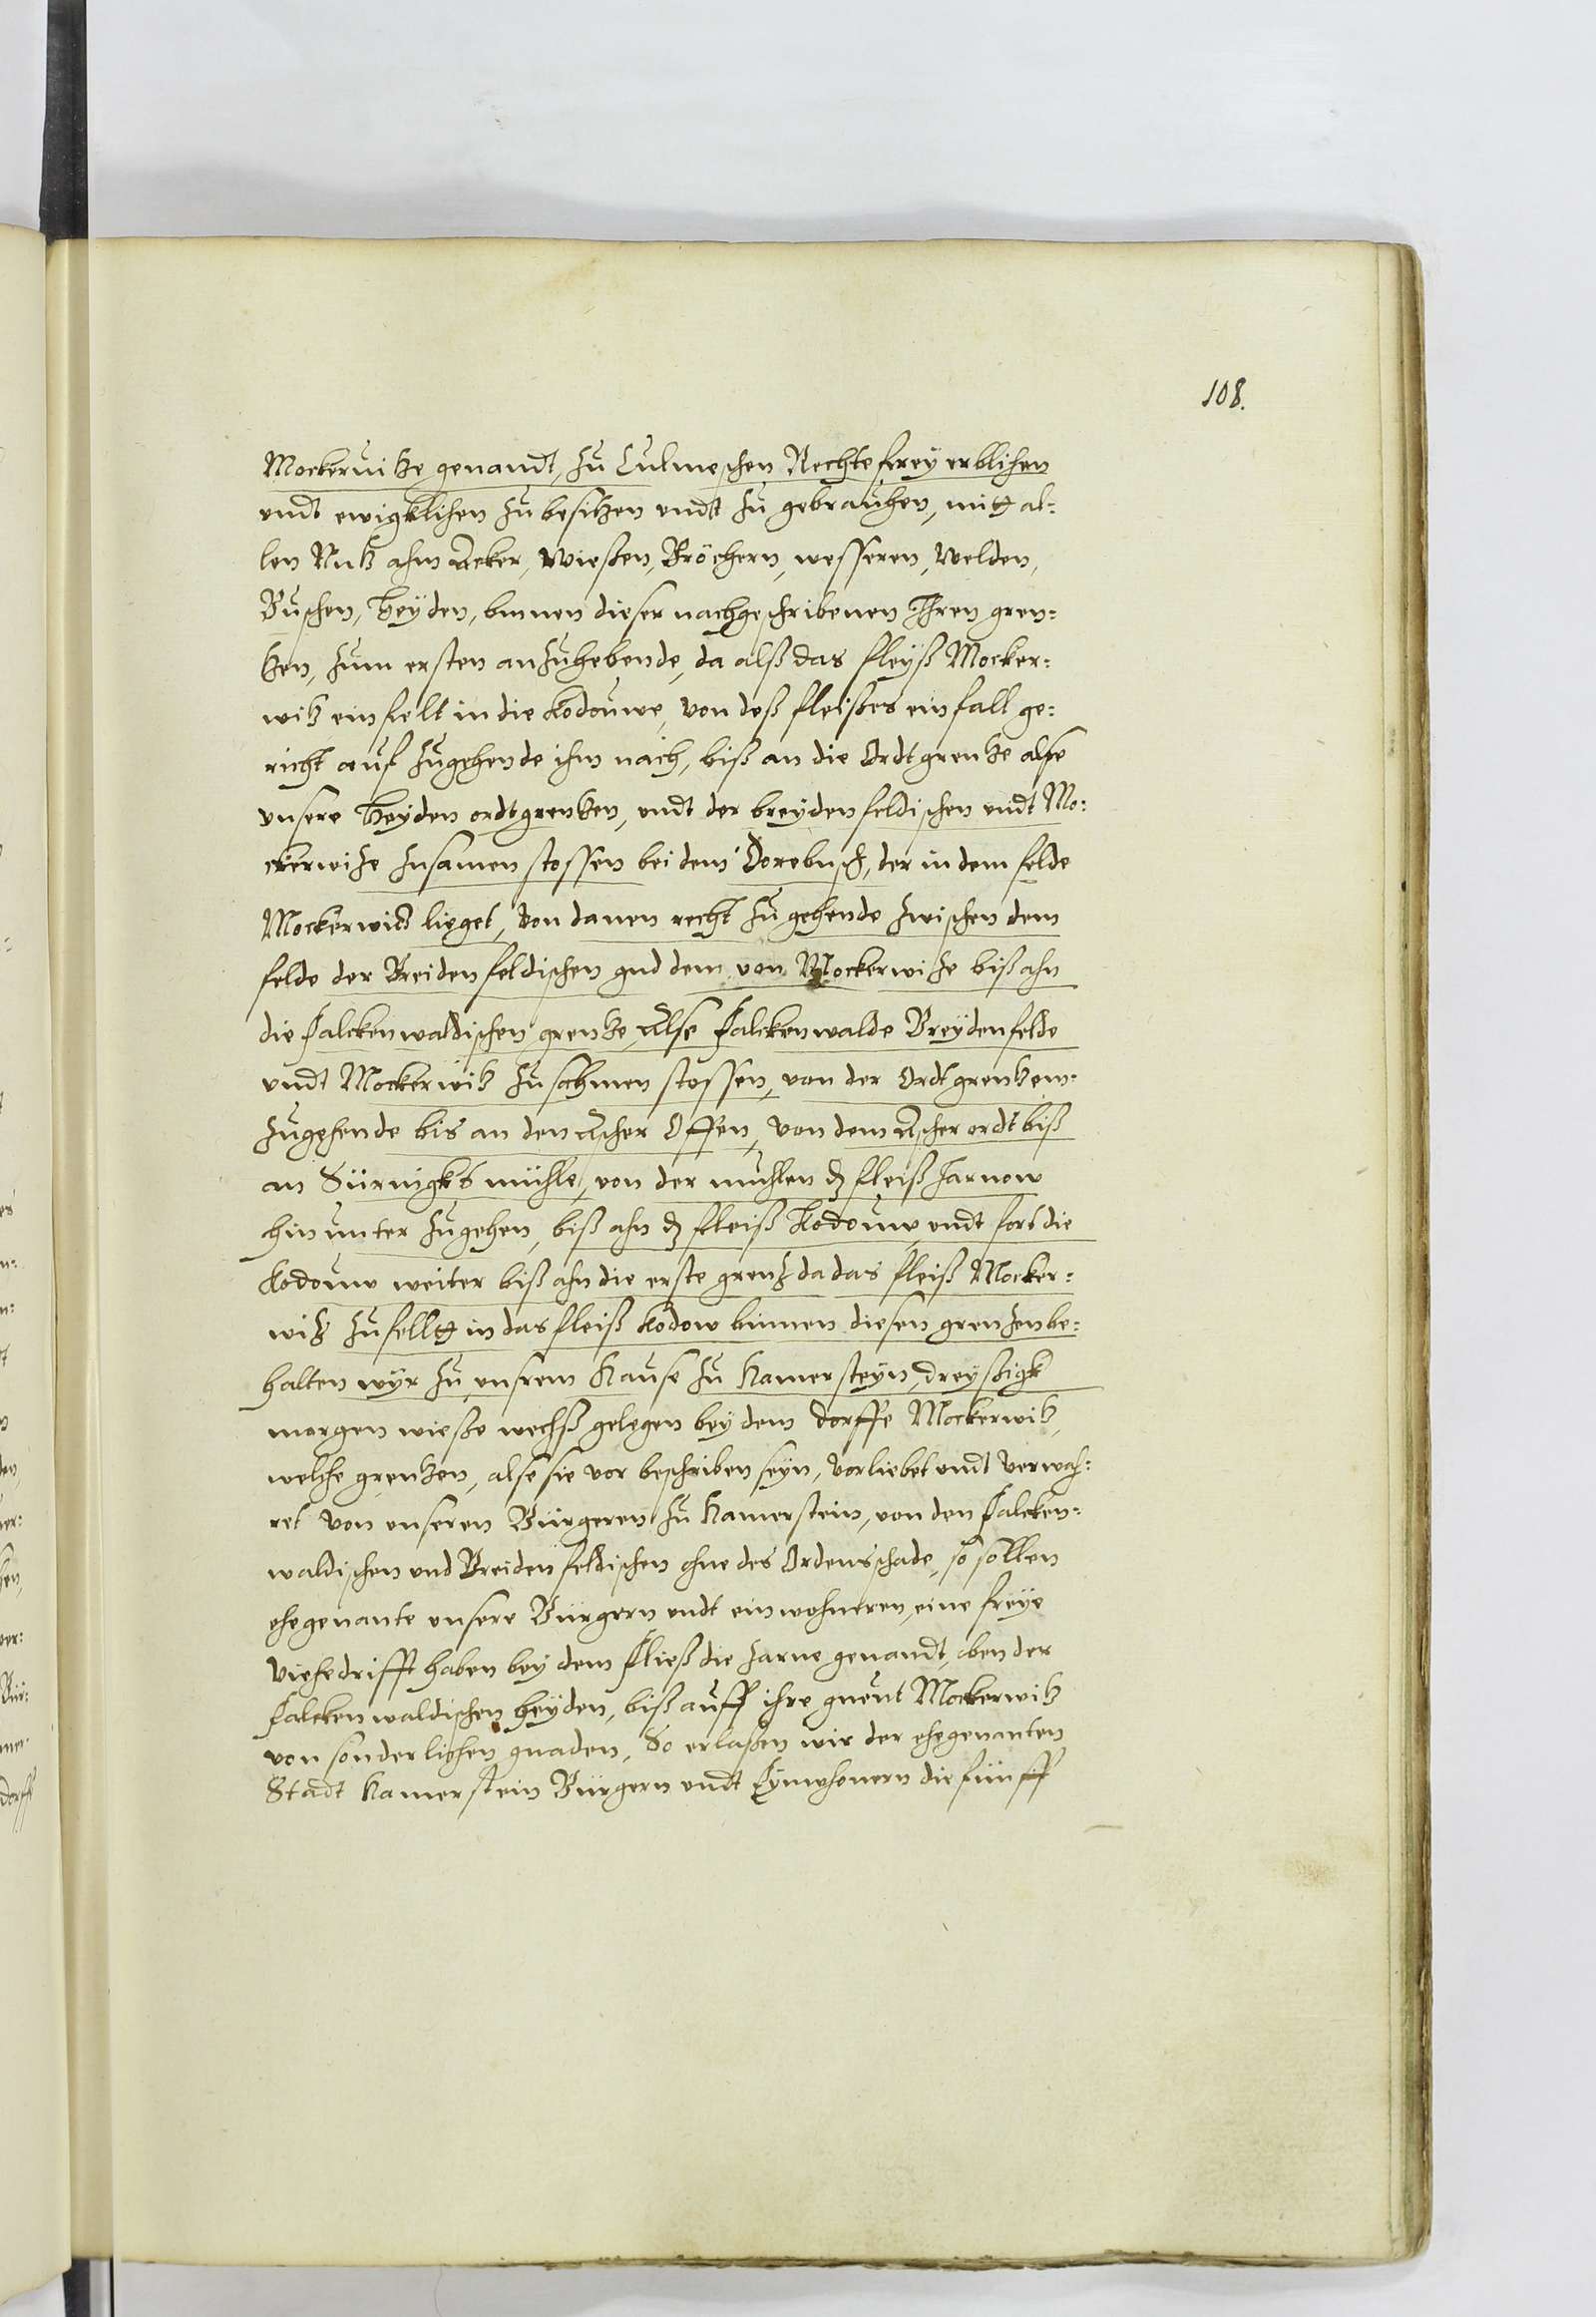 108.
Mockeruitze genandt, zu Culmeschen Rechte frey erblichen
undt ewigklichen zu besitzen undt zu gebrauchen, mitt al=
len Nutz ahm Acker, Wießen, Bröchern, wesseren, Welden,
Buschen, Heyden, binnen dieser nachgeschribenen Ihren gren=
tzen, zum ersten anzuhebende, da alß das fleyß Mocker=
witz einfelt in die Kodouwe, von deß fleißes einfall ge=
richt auf zugehende ihm nach, biß an die Ordtgrentze alße
unsere Heyden ordtgrentzen, undt der breydenfeldischen undt Mo=
ckerwitze zusamen stossen bei dem Dorebusch, der in dem felde
Mockerwitz lieget, Von danen recht zu gehende zwischen dem
felde der Breidenfeldischen und dem von Mockerwitze biß ahn
die Falckenwaldischen grentze, Alse Falckenwalde Breydenfelde
undt Mockerwitz zusahmen stossen, von der Ordtgrentzen=
zugehende bis an den Ascher Offen, von dem Ascher ordt biß
an Sürnigks mühle, von der muhlen dz fleiß Zarnow
hinunter zugehen, biß ahn dz fleiß Kodouw, undt fort die
Kodouw weiter biß ahn die erste grentz da das fleiß Mocker=
witz zufellt in das fleiß Kodow binnen diesen grentzen be=
halten wyr zu unsrem Hause zu Hamersteyn, dreyßigk
morgen wieße wechß gelegen bey dem dorffe Mockerwitz,
welche grentzen, alse sie vor beschriben seyn, Vorliebet undt Verwah=
ret Von unseren Bürgeren zu Hamerstein, von den Falcken=
waldischen und Breidenfeldischen ohne des Ordens schade, so sollen
ehegenante unsere Bürgern undt einwohneren, eine freye
Viehedrifft haben bey dem Fließ die Zarne genandt, oben der
Falckenwaldischen Heyden, biß auff ihre gueut Mockerwitz
von sonderlichen gnaden, So erlaßen wir der ehegenanten
Stadt Hamerstein Bürgern undt Eynwhonern die fünff